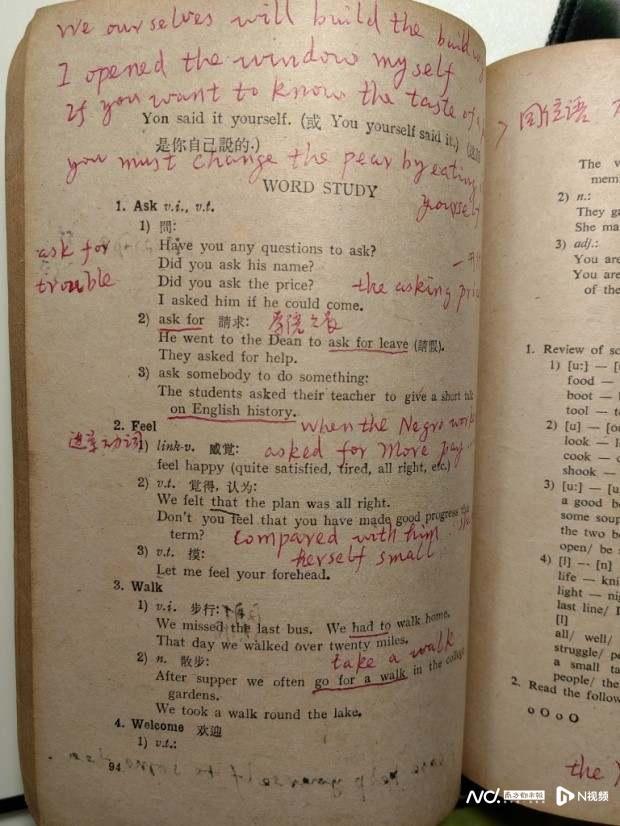 We ourselves will build the building
I opened the window myself
If you want to know the taste of a
You said it yourself. (或 You yourself said it.)
是你自己說的.)
you must change the pear by eating
yourself
WORD STUDY
1. Ask v.i., v.t.
1) 問:
Have you any questions to ask?
ask for
trouble
Did you ask his name?
Did you ask the price?
the asking price
I asked him if he could come.
2) ask for 請求:
He went to the Dean to ask for leave (請假).
They asked for help.
3) ask somebody to do something:
The students asked their teacher to give a short talk
on English history.
when the Negro
2. Feel
1) link-v. 感覚:
asked for more pay
feel happy (quite satisfied, tired, all right, etc.)
2) v.t. 覚得, 认为:
We felt that the plan was all right.
Don't you feel that you have made good progress this
term?
Compared with him
herself small
3) v.t. 摸:
Let me feel your forehead.
3. Walk
1) v.i. 步行:
We missed the last bus. We had to walk home.
That day we walked over twenty miles.
take a walk
2) n. 散步:
After supper we often go for a walk in the college
gardens.
We took a walk round the lake.
4. Welcome 欢迎
1) v.t.:
94
同位语
The v
mem
2) n.:
They ga
She ma
3) adj.:
You are
You are
of the
1. Review of so
1) [u:] — [
food —
boot —
tool — t
2) [u] — [
look — l
cook — c
shook —
3) [u:] — [
a good b
some soup
the two b
open/ be s
4) [l] — [n]
life — kni
light — nig
last line/
[l]
all/ well/
struggle/ pe
a small ta
people/ the
2. Read the follow
o O o O
the
南方都市报
N视频